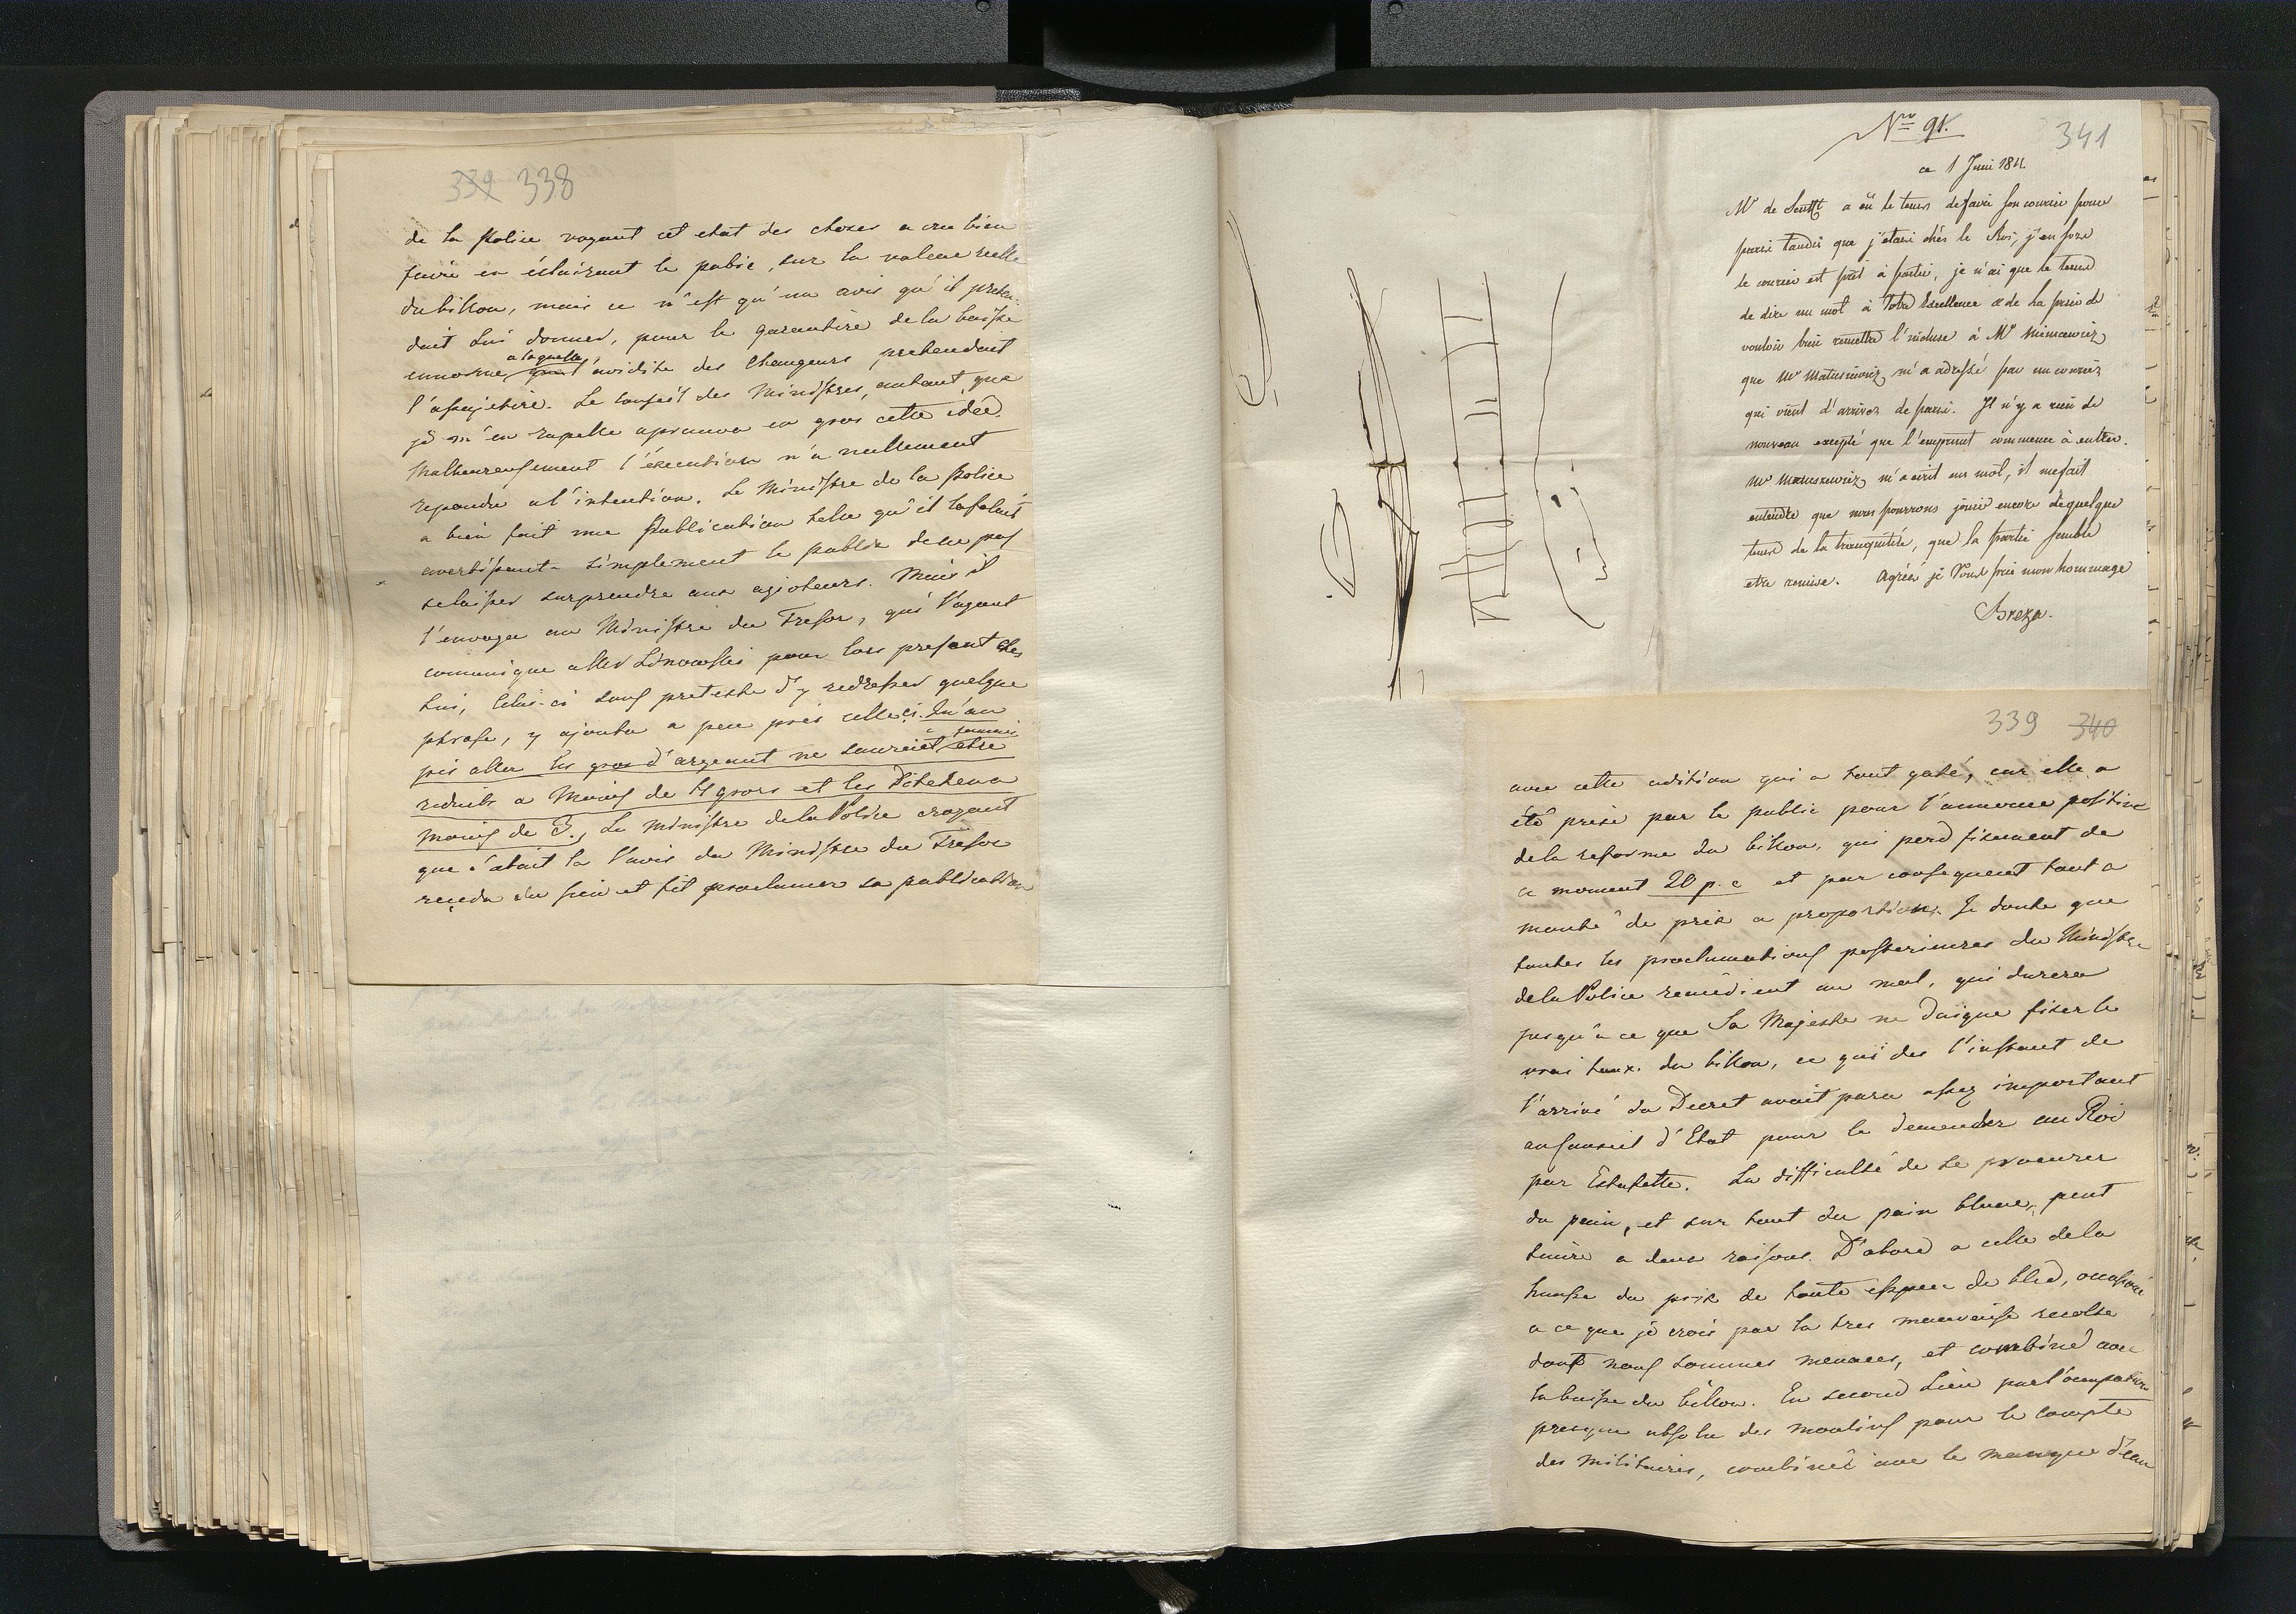 ~~339~~ 338
de la Police voyant cet etat des choses a cru bien
faire en éclairant le public, sur la valeur reelle
du billon, mais ce n'est qu'un avis qu'il preten-
dait lui donner, pour le garantire de la baisse
ennorme a laquelle, l'avidite des Changeurs, pretendait
l'assujetire. Le conseil des Ministres, autant que
je m'en rapelle aprouva en gros cette idée.
Malheureusement l'execution n'a nullement
repondu a l'intention. Le Ministre de la Police
a bien fait une Publication telle qu'il la falait
avertissant simplement le public de ne pas
se laisser surprendre aux agioteurs. Mais il
l'envoya au Ministre du Tresor, qui l'ayant
comunique a Mr Linowski pour lors present chez
lui, celui-ci sous pretexte d'y redresser quelque
phrase, y ajouta a peu près celle ci. Qu'au
pis aller les gros d'argeant ne sauroient jamais etre
reduits a Moins de 4 gros et les Ditchens a
moins de 3., Le Ministre de la Police croyant
que c'etait la l'avis du Ministre du Tresor
reçeda du sien et fit proclamer sa publication
Nro 91.
341
ce 1 Juin 1811.
Mr de Senfft a eü le tems de faire son courier pour
paris tandis que j'etais chés le Roi, j'en sors
le courier est prêt à partir, je n'ai que le tems
de dire un mot à Votre Excellence & de La prier de
vouloir bien remettre l'incluse à Mr Niemcewicz
que Mr Matusiewicz m'a adressé par un courier
qui vient d'arriver de paris. Il n'y a rien de
nouveau excepté que l'emprunt commence à entrer.
Mr Matuszewicz m'a ecrit un mot, il me fait
entendre que nous pourrons jouir encore de quelque
tems de la tranquilité, que la partie semble
etre remise. Agréés je Vous prie mon hommage
Breza.
339 ~~340~~
avec cette adition qui a tout gaté, car elle a
été prise par le public pour l'annonce positive
de la reforme du billon, qui perd fixement de
ce moment 20 p. c et par consequent tout a
monté de prix a proportion. Je doute que
toutes les proclamations posterieures du Ministre
de la Police remédient au mal, qui durera
jusqu'a ce que Sa Majeste ne daigne fixer le
vrai taux du billon, ce qui des l'instant de
l'arrivé du Decret avait paru assez important
au Conseil d'Etat pour le demander au Roi
par Estafette. La difficulté de se procurer
du pain, et sur tout du pain blanc, peut
tenire a deux raisons. D'abord a celle de la
hausse du prix de toute espece de bled, occasioné
a ce que je crois par la tres mauvaise recolte
dont nous sommes menaces, et combiné avec
la baisse du billon. En second Lieu par l'ocupation
presque absolue des moulins pour le compte
des Militaires, combinée avec le manque d'eau